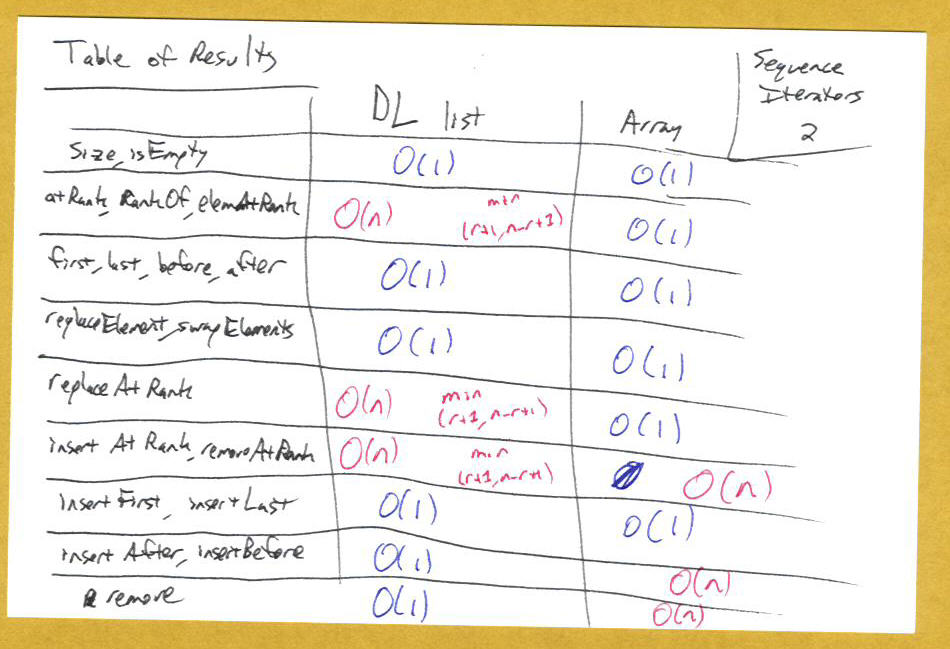 Table of Results
Sequence
Iterators
2
DL list Array
Size, isEmpty O(1) O(1)
atRank, RankOf, elemAtRank O(n) min (r+1, n-r+1) O(1)
first, last, before, after O(1) O(1)
replaceElement, swapElements O(1) O(1)
replaceAtRank O(n) min (r+1, n-r+1) O(1)
insertAtRank, removeAtRank O(n) min (r+1, n-r+1) O(n)
insertFirst, insertLast O(1) O(1)
insertAfter, insertBefore O(1) O(n)
remove O(1) O(n)